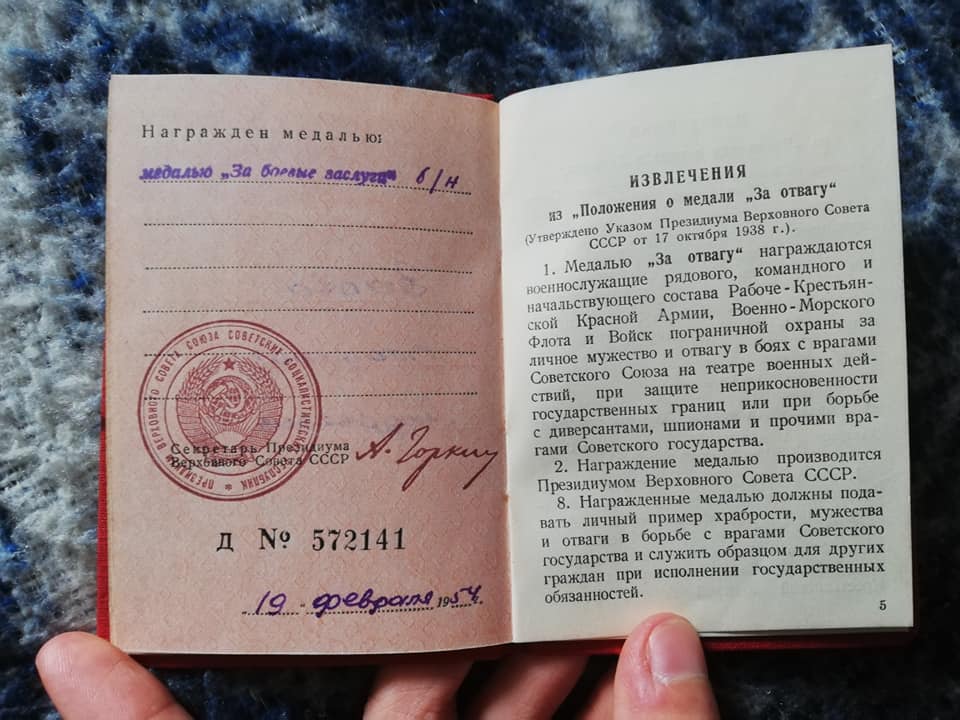 Награжден медалью:
медалью „За боевые заслуги“ б/н
ПРЕЗИДИУМ ВЕРХОВНОГО СОВЕТА СОЮЗА СОВЕТСКИХ СОЦИАЛИСТИЧЕСКИХ РЕСПУБЛИК
Секретарь Президиума
Верховного Совета СССР
А. Горкин
Д № 572141
„19“ февраля 1954 г.
ИЗВЛЕЧЕНИЯ
из „Положения о медали „За отвагу“
(Утверждено Указом Президиума Верховного Совета
СССР от 17 октября 1938 г.).
1. Медалью „За отвагу“ награждаются
военнослужащие рядового, командного и
начальствующего состава Рабоче-Крестьян-
ской Красной Армии, Военно-Морского
Флота и Войск пограничной охраны за
личное мужество и отвагу в боях с врагами
Советского Союза на театре военных дей-
ствий, при защите неприкосновенности
государственных границ или при борьбе
с диверсантами, шпионами и прочими вра-
гами Советского государства.
2. Награждение медалью производится
Президиумом Верховного Совета СССР.
8. Награжденные медалью должны пода-
вать личный пример храбрости, мужества
и отваги в борьбе с врагами Советского
государства и служить образцом для других
граждан при исполнении государственных
обязанностей.
5